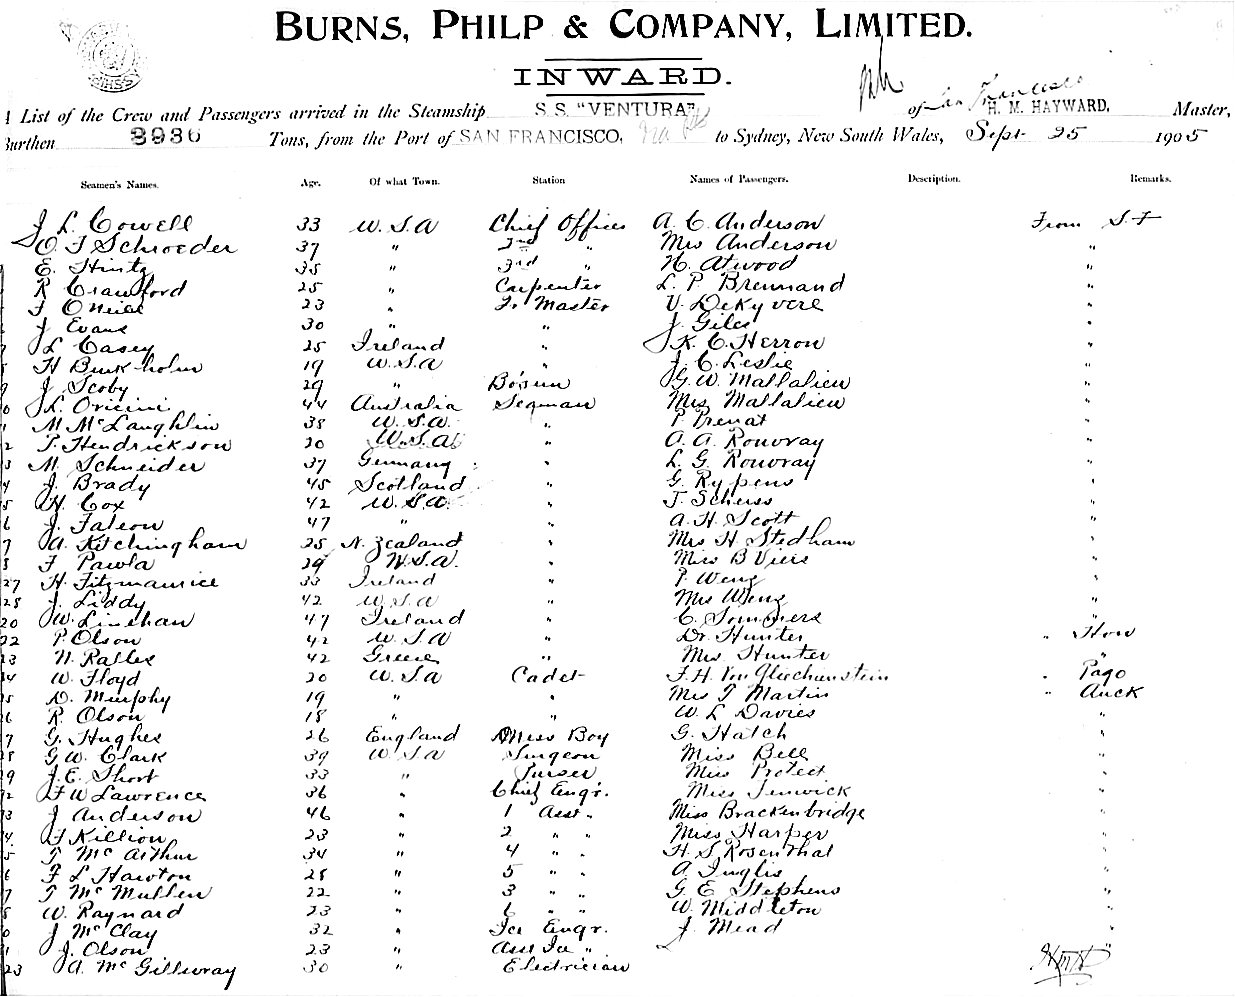 BURNS, PHILP & COMPANY, LIMITED.
INWARD.
A List of the Crew and Passengers arrived in the Steamship S.S. "VENTURA" of San Francisco H. M. HAYWARD, Master,
Burthen 3930 Tons, from the Port of SAN FRANCISCO, to Sydney, New South Wales, Sept 25 1905
Seamen's Names. Age. Of what Town. Station Names of Passengers. Description. Remarks.
J L Cowell 33 U.S.A Chief Officer A. C. Anderson From S F
O F Schroeder 37 " 2nd " Mrs Anderson "
E. Hintz 35 " 3rd " H. Atwood "
R Crawford 25 " Carpenter L. P. Brennand "
F O'Neill 23 " Qr Master V. Dekyvere "
J Evans 30 " " J. Giles "
L Casey 25 Ireland " K. C. Herron "
H Burkholm 19 U.S.A " J. C. Leslie "
J. Scoby 29 " Bo'sun G. W. Mallalieu "
L. Oricini 44 Australia Seaman Mrs Mallalieu "
M McLaughlin 38 U.S.A. " P. Prenat "
T. Hendrickson 20 U.S.A. " A. A. Rouvray "
M. Schneider 37 Germany " L. G. Rouvray "
J. Brady 45 Scotland " G. Rypens "
H. Cox 42 U.S.A. " J. Scheiss "
J. Faleon 47 " " A. H. Scott "
A. Kitchingham 25 N. Zealand " Mrs H Stedham "
F Pawla 29 U.S.A. " Miss B Viers "
27 H. Fitzmaurice 33 Ireland " P. Weng "
28 J. Liddy 42 U.S.A " Mrs Weng "
20 W. Linehan 47 Ireland " C. Sommers "
22 P. Olson 42 U.S.A " Dr. Hunter " Hon
23 N. Ralles 42 Greece " Mrs. Hunter "
24 W. Floyd 20 U.S.a Cadet F. H. Von Glichenstein " Pago
25 D. Murphy 19 " " Mrs T Martin " Auck
26 R. Olson 18 " " W. L Davies "
27 G. Hughes 26 England Mess Boy G. Hatch "
28 G. W. Clark 39 U.S.a Surgeon Miss Bell "
29 J. E. Short 33 " Purser Miss Protect "
F W Lawrence 36 " Chief Engr. Miss Fenwick "
J Anderson 46 " 1 Asst. Miss Brackenbridge "
F Killion 23 " 2 " " Miss Harper "
T McArthur 34 " 4 " " H. S Rosenthal "
F L Hawton 28 " 5 " " A Inglis "
T McMullen 22 " 3 " " G. E Stephens "
W. Raynard 23 " 6 " " W. Middleton "
J McClay 32 " Ice Engr. J. Mead "
J. Olson 23 " Asst Ice " "
A. McGillivray 30 " Electrician